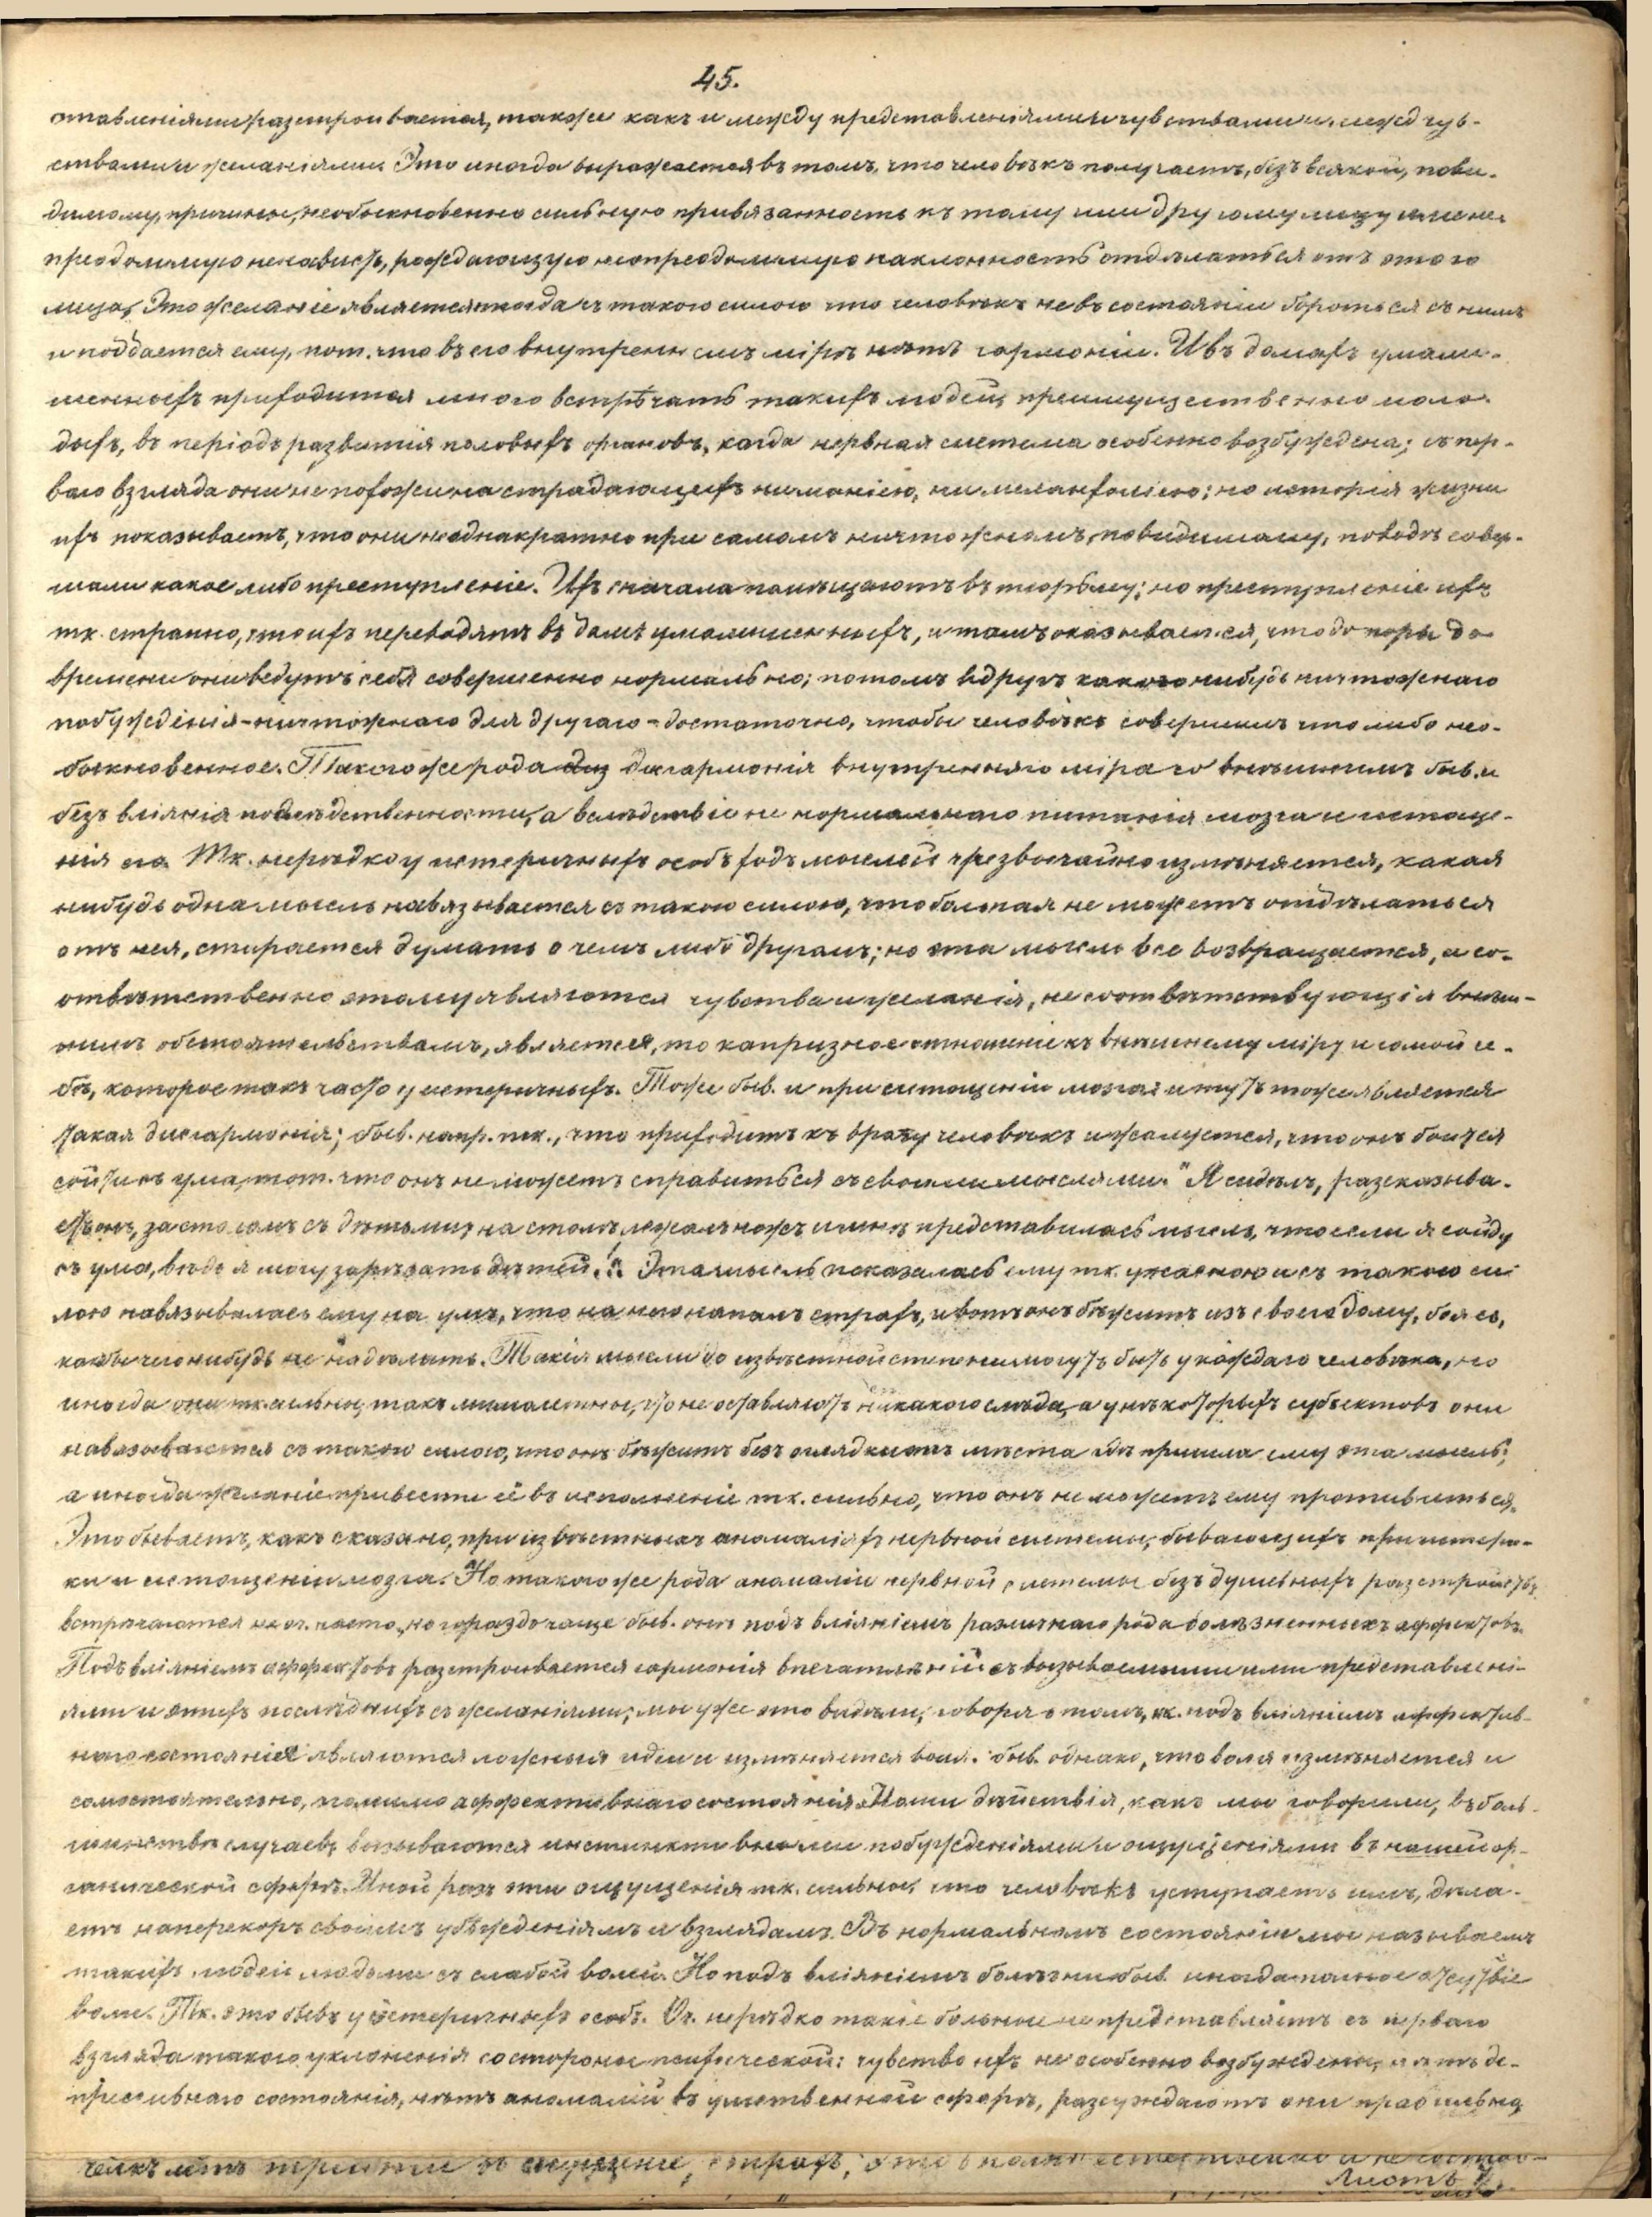 45.
ставленіями разстроивается, также какъ и между представленіями и чувствами и межд чув-
ствами и желаніями. Это иногда выражается въ томъ, что человѣкъ получаетъ, безъ всякой, пови-
димому, причины, необыкновенно сильную привязанность къ тому или другому лицу или не-
преодолимую ненависть, рождающую непреодолимую наклонность отдѣлаться отъ этого
лица, Это желаніе является тогда съ такою силою что человѣкъ не въ состояніи бороться съ нимъ
и поддается ему, пот. что въ его внутреннемъ мірѣ нѣтъ гармоніи. И въ домахъ умали-
шенныхъ приходится много встрѣчать такихъ людей, преимущественно моло-
дыхъ, въ періодъ развитія половыхъ органовъ, когда нервная система особенно возбуждена; съ пер-
ваго взгляда они не похожи на страдающихъ ни маніею, ни меланхоліею; но исторія жизни
ихъ показываетъ, что они неоднакратно при самомъ ничтожномъ, повидимому, поводѣ совер-
шали какое либо преступленіе. Ихъ сначала помѣщаютъ въ тюрьму; но преступленіе ихъ
тк. странно, что ихъ переводятъ въ домъ умалишенныхъ, и тамъ оказывается, что до поры до
времени они ведутъ себя совершенно нормально; потомъ вдругъ какого нибудь ничтожнаго
побужденія - ничтожнаго для другаго - достаточно, чтобы человѣкъ совершилъ что либо нео-
быкновенное. Такого же рода диз дисгармонія внутренняго міра со внѣшнимъ быв. и
безъ вліянія наслѣдственности, а вслѣдствіе не нормальнаго питанія мозга и истоще-
нія его. Тк. нерѣдко у истеричныхъ особъ ходъ мыслей чрезвычайно измѣняется, какая
нибудь одна мысль навязывается съ такою силою, что больная не можетъ отдѣлаться
отъ нея, старается думать о чемъ либо другомъ; но эта мысль все возвращается, и со-
отвѣтственно этому являются чувства и желанія, не соотвѣтствующія внѣш-
нимъ обстоятельствамъ, является, то капризное отношеніе къ внѣшнему міру и самой се-
бѣ, которое такъ часто у истеричныхъ. Тоже быв. и при истощеніи мозга: и тутъ тоже является
такая дисгармонія; быв. напр. тк., что приходитъ къ врачу человѣкъ и жалуется, что онъ боится
сойти съ ума, пот. что онъ не можетъ справиться съ своими мыслями. "Я сидѣлъ, разсказыва-
етъ онъ, за столомъ съ дѣтьми, на столѣ лежалъ ножъ и мнѣ представилась мысль, что если я сойду
съ ума, вѣдь я могу зарѣзать дѣтей!.." Эта мысль показалась ему тк. ужасною и съ такою си
лою навязывалась ему на умъ, что на него напалъ страхъ, и вотъ онъ бѣжитъ изъ своего дому, боясь,
какъ бы чего нибудь не надѣлать. Такія мысли до извѣстной степени могутъ быть у каждаго человѣка, но
иногда они тк. сильны, такъ мимолетны, что не оставляютъ никакого слѣда, а у нѣкоторыхъ субъектовъ они
навязываются съ такою силою, что онъ бѣжитъ безъ оглядки отъ мѣста гдѣ пришла ему эта мысль;
а иногда желаніе привести её въ исполненіе тк. сильно, что онъ не можетъ ему противиться.
Это бываетъ, какъ сказано, при извѣстныхъ аномаліяхъ нервной системы, бывающихъ при истери-
ки и истощеніи мозга. Но такого же рода аномаліи нервной системы безъ душевныхъ разстройствъ
встрѣчаются не оч. часто, но гораздо чаще быв. они подъ вліяніемъ различнаго рода болѣзненныхъ аффектовъ.
Подъ вліяніемъ аффектовъ разстроивается гармонія впечатлѣній съ вызываемыми ими представлені-
ями и этихъ послѣднихъ съ желаніями; мы уже это видѣли, говоря о томъ, кк. подъ вліяніемъ аффектив-
наго состоянія являются ложныя идеи и измѣняется воля. быв. однако, что воля измѣняется и
самостоятельно, помимо аффективнаго состоянія. Наши дѣйствія, какъ мы говорили, въ боль-
шинствѣ случаевъ вызываются инстинктивными побужденіями и ощущеніями въ нашей ор-
ганической сферѣ. Иной разъ эти ощущенія тк. сильны, что человѣкъ уступаетъ имъ, дѣла-
етъ наперекоръ своимъ убѣжденіямъ и взглядамъ. Въ нормальномъ состояніи мы называемъ
такихъ людей людьми съ слабой волей. Но подъ вліяніемъ болѣзни быв. иногда полное отсутствіе
воли. Тк. это бывъ у истеричныхъ особъ. Оч. нерѣдко такіе больные не представляютъ съ перваго
взгляда такого уклоненія со стороны психической: чувство ихъ не особенно возбуждено, нѣтъ де-
прессивнаго состоянія, нѣтъ аномалій въ умственной сферѣ, разсуждаютъ они правильно,
Листъ